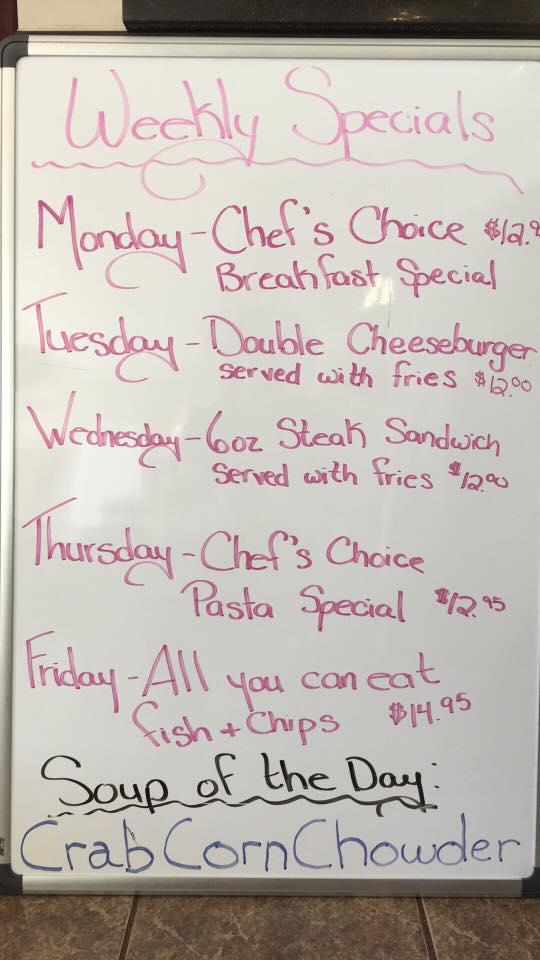 Weekly Specials
Monday - Chef's Choice
Breakfast Special
Tuesday - Double Cheeseburger
served with fries $12.00
Wednesday - 6oz Steak Sandwich
served with fries $12.00
Thursday - Chef's Choice
Pasta Special $12.95
Friday - All you can eat
fish + Chips $14.95
Soup of the Day:
Crab Corn Chowder